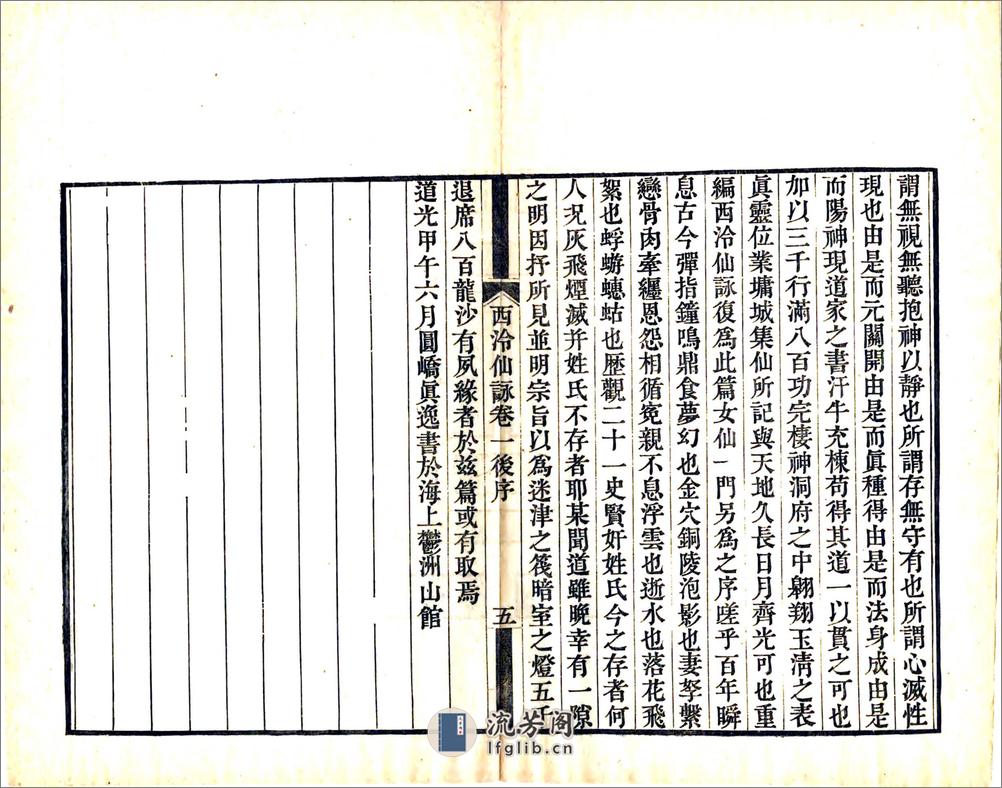 謂無視無聽抱神以靜也所謂存無守有也所謂心滅性
現也由是而元關開由是而眞種得由是而法身成由是
而陽神現道家之書汗牛充棟苟得其道一以貫之可也
加以三千行滿八百功完棲神洞府之中翱翔玉淸之表
眞靈位業墉城集仙所記與天地久長日月齊光可也重
編西泠仙詠復爲此篇女仙一門另爲之序嗟乎百年瞬
息古今彈指鐘鳴鼎食夢幻也金穴銅陵泡影也妻孥繫
戀骨肉牽纏恩怨相循寃親不息浮雲也逝水也落花飛
絮也蜉蝣蟪蛄也歷觀二十一史賢奸姓氏今之存者何
人況灰飛煙滅并姓氏不存者耶某聞道雖晚幸有一隙
之明因抒所見並明宗旨以爲迷津之筏暗室之燈五千
西泠仙詠卷一後序
五
退席八百龍沙有夙緣者於兹篇或有取焉
道光甲午六月圓嶠眞逸書於海上鬱洲山館
流芳阁
lfglib.cn